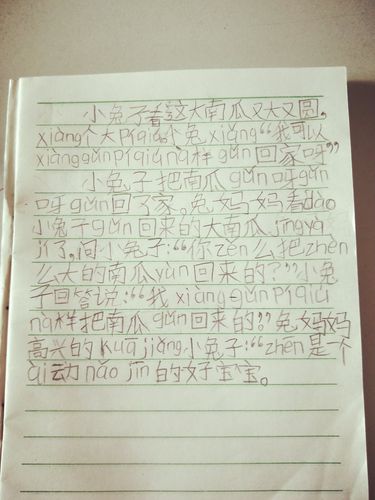 小兔子看这大南瓜又大又圆,
xiàng个大píqiú,小兔xiǎng“我可以
xiànggǔnpíqiúnà样gǔn回家呀”
小兔子把南瓜gǔn呀gǔn
呀gǔn回了家。兔妈妈看dào
小兔子gǔn回来的大南瓜jīngyà
jí了,问小兔子:“你zěn么把zhèn
么大的南瓜yùn回来的?”小兔
子回答说:“我xiànggǔnpíqiú
nà样把南瓜gǔn回来的!”兔妈妈
高兴的kuājiǎng小兔子:“zhēn是一个
ài动nǎojīn的好宝宝。